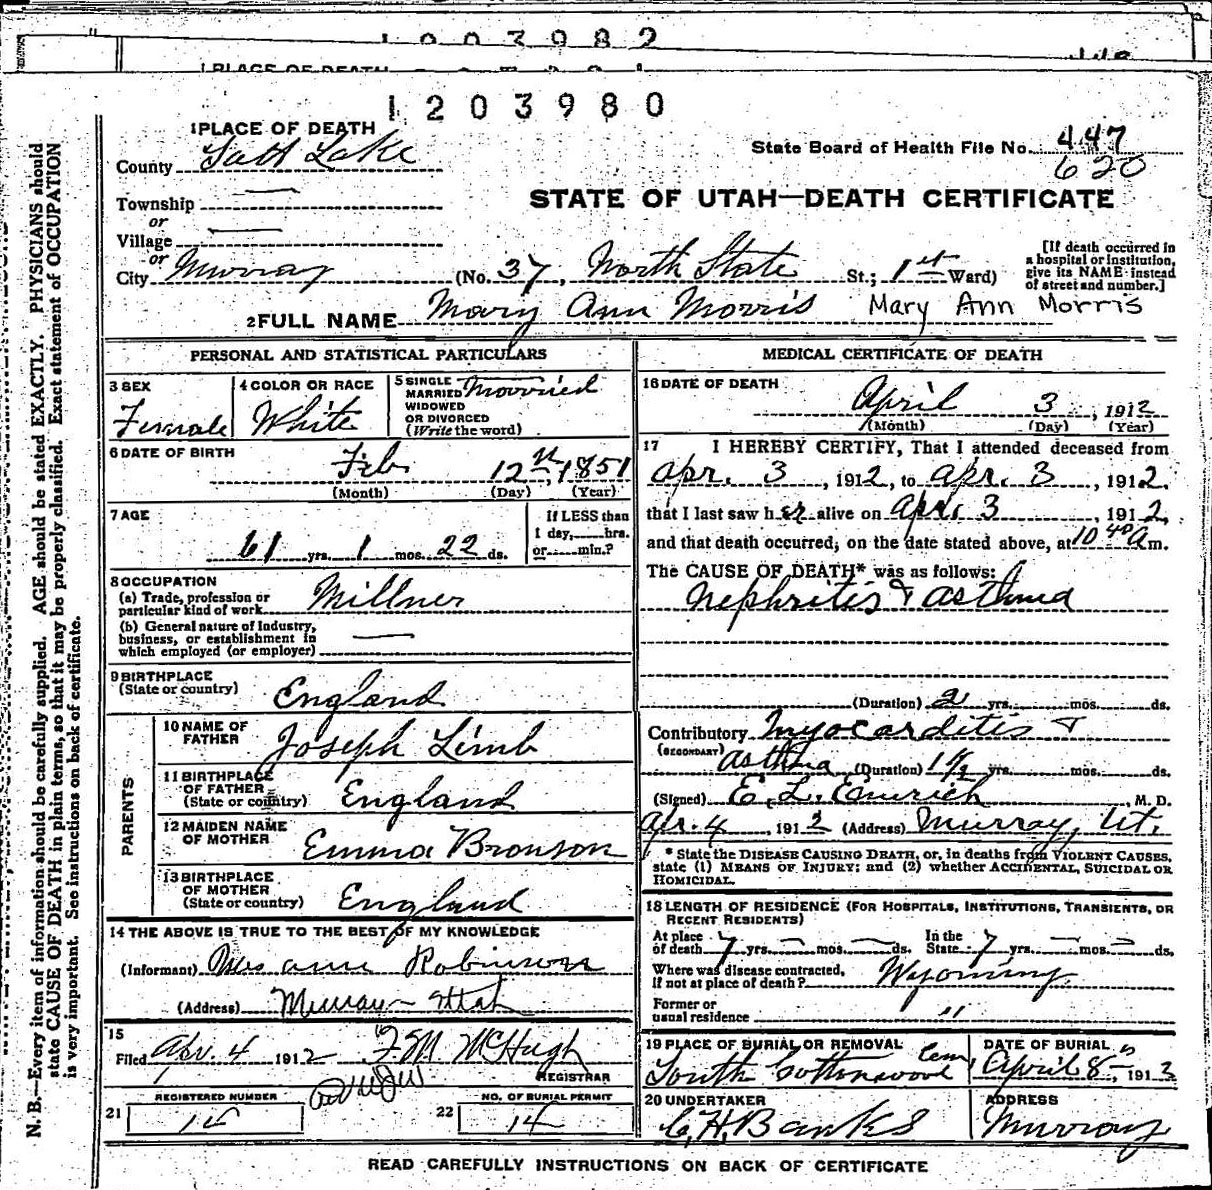 1203982
1 PLACE OF DEATH
1203980
1 PLACE OF DEATH
County Salt Lake
State Board of Health File No. 447
620
Township —
or
Village —
or
City Murray (No. 37, North State St.; 1st Ward)
STATE OF UTAH—DEATH CERTIFICATE
[If death occurred in a hospital or institution, give its NAME instead of street and number.]
2 FULL NAME Mary Ann Morris Mary Ann Morris
PERSONAL AND STATISTICAL PARTICULARS
3 SEX
Female
4 COLOR OR RACE
White
5 SINGLE
MARRIED
WIDOWED
OR DIVORCED
(Write the word)
Married
6 DATE OF BIRTH
Feb 12th, 1851
(Month) (Day) (Year)
7 AGE
61 yrs. 1 mos. 22 ds.
If LESS than
1 day, hrs.
or min.?
8 OCCUPATION
(a) Trade, profession or
particular kind of work Millner
(b) General nature of Industry,
business, or establishment in
which employed (or employer) —
9 BIRTHPLACE
(State or country) England
PARENTS
10 NAME OF
FATHER Joseph Limb
11 BIRTHPLACE
OF FATHER
(State or country) England
12 MAIDEN NAME
OF MOTHER Emma Bronson
13 BIRTHPLACE
OF MOTHER
(State or country) England
14 THE ABOVE IS TRUE TO THE BEST OF MY KNOWLEDGE
(Informant) Mrs Ann Robinson
(Address) Murray Utah
15
Filed Apr. 4 1912 McHugh
REGISTRAR
REGISTERED NUMBER
21 14
NO. OF BURIAL PERMIT
22 14
MEDICAL CERTIFICATE OF DEATH
16 DATE OF DEATH
April 3, 1912
(Month) (Day) (Year)
17 I HEREBY CERTIFY, That I attended deceased from
Apr. 3, 1912, to Apr. 3, 1912.
that I last saw her alive on Apr. 3, 1912,
and that death occurred, on the date stated above, at 10 40 a m.
The CAUSE OF DEATH* was as follows:
Nephritis & asthma
(Duration) 2 yrs. mos. ds.
Contributory Myocarditis &
(SECONDARY) asthma (Duration) 1 1/2 yrs. mos. ds.
(Signed) E. L. Emrich, M. D.
Apr. 4, 1912 (Address) Murray, Ut.
* State the DISEASE CAUSING DEATH, or, in deaths from VIOLENT CAUSES,
state (1) MEANS OF INJURY; and (2) whether ACCIDENTAL, SUICIDAL OR
HOMICIDAL.
18 LENGTH OF RESIDENCE (FOR HOSPITALS, INSTITUTIONS, TRANSIENTS, OR
RECENT RESIDENTS)
At place
of death 7 yrs. — mos. — ds.
In the
State 7 yrs. — mos. — ds.
Where was disease contracted,
if not at place of death? Wyoming.
Former or
usual residence "
19 PLACE OF BURIAL OR REMOVAL
South Cottonwood Cem,
DATE OF BURIAL
April 8th, 1912
20 UNDERTAKER
C. H. Banks
ADDRESS
Murray
READ CAREFULLY INSTRUCTIONS ON BACK OF CERTIFICATE
N. B.—Every item of information should be carefully supplied. AGE should be stated EXACTLY. PHYSICIANS should
state CAUSE OF DEATH in plain terms, so that it may be properly classified. Exact statement of OCCUPATION
is very important. See instructions on back of certificate.